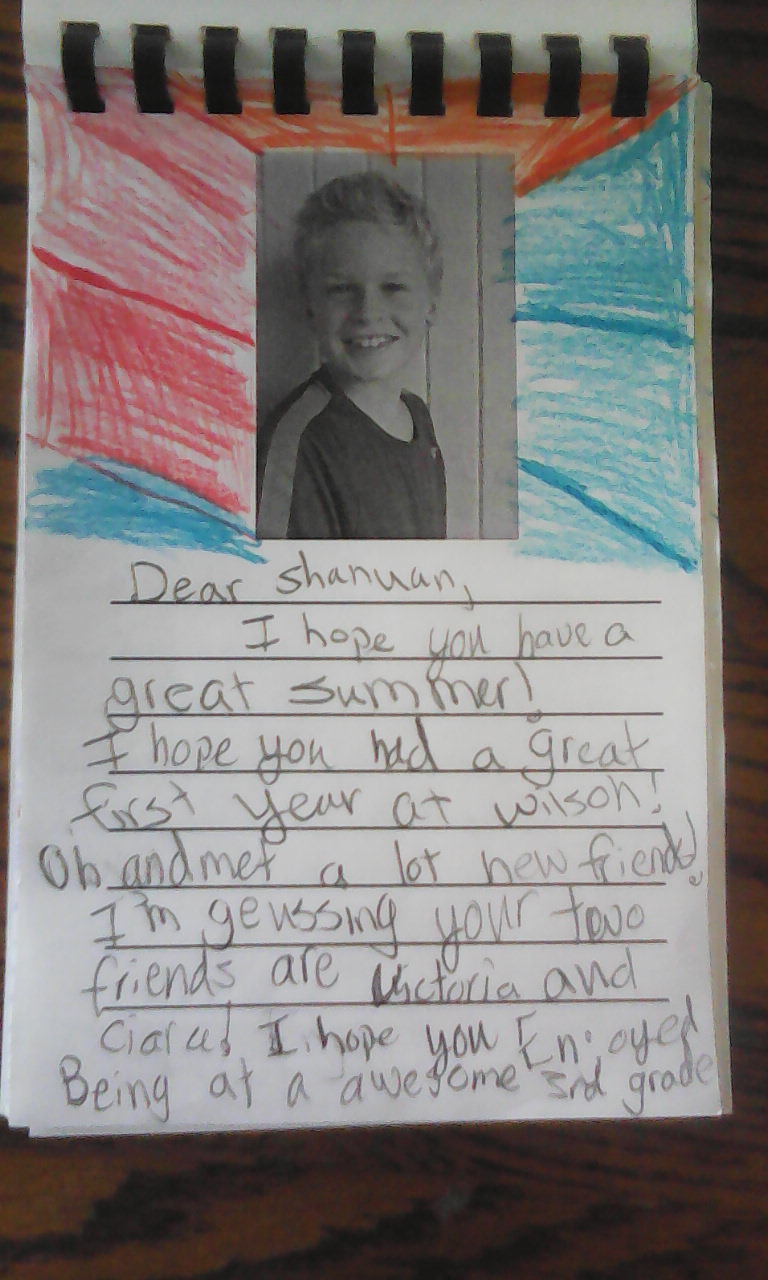 Dear Shanuan,
I hope you have a
great summer!
I hope you had a great
first year at wilson!
Oh and met a lot new friends!
I'm geussing your two
friends are Victoria and
Ciara! I hope you Enjoyed
Being at a awesome 3rd grade